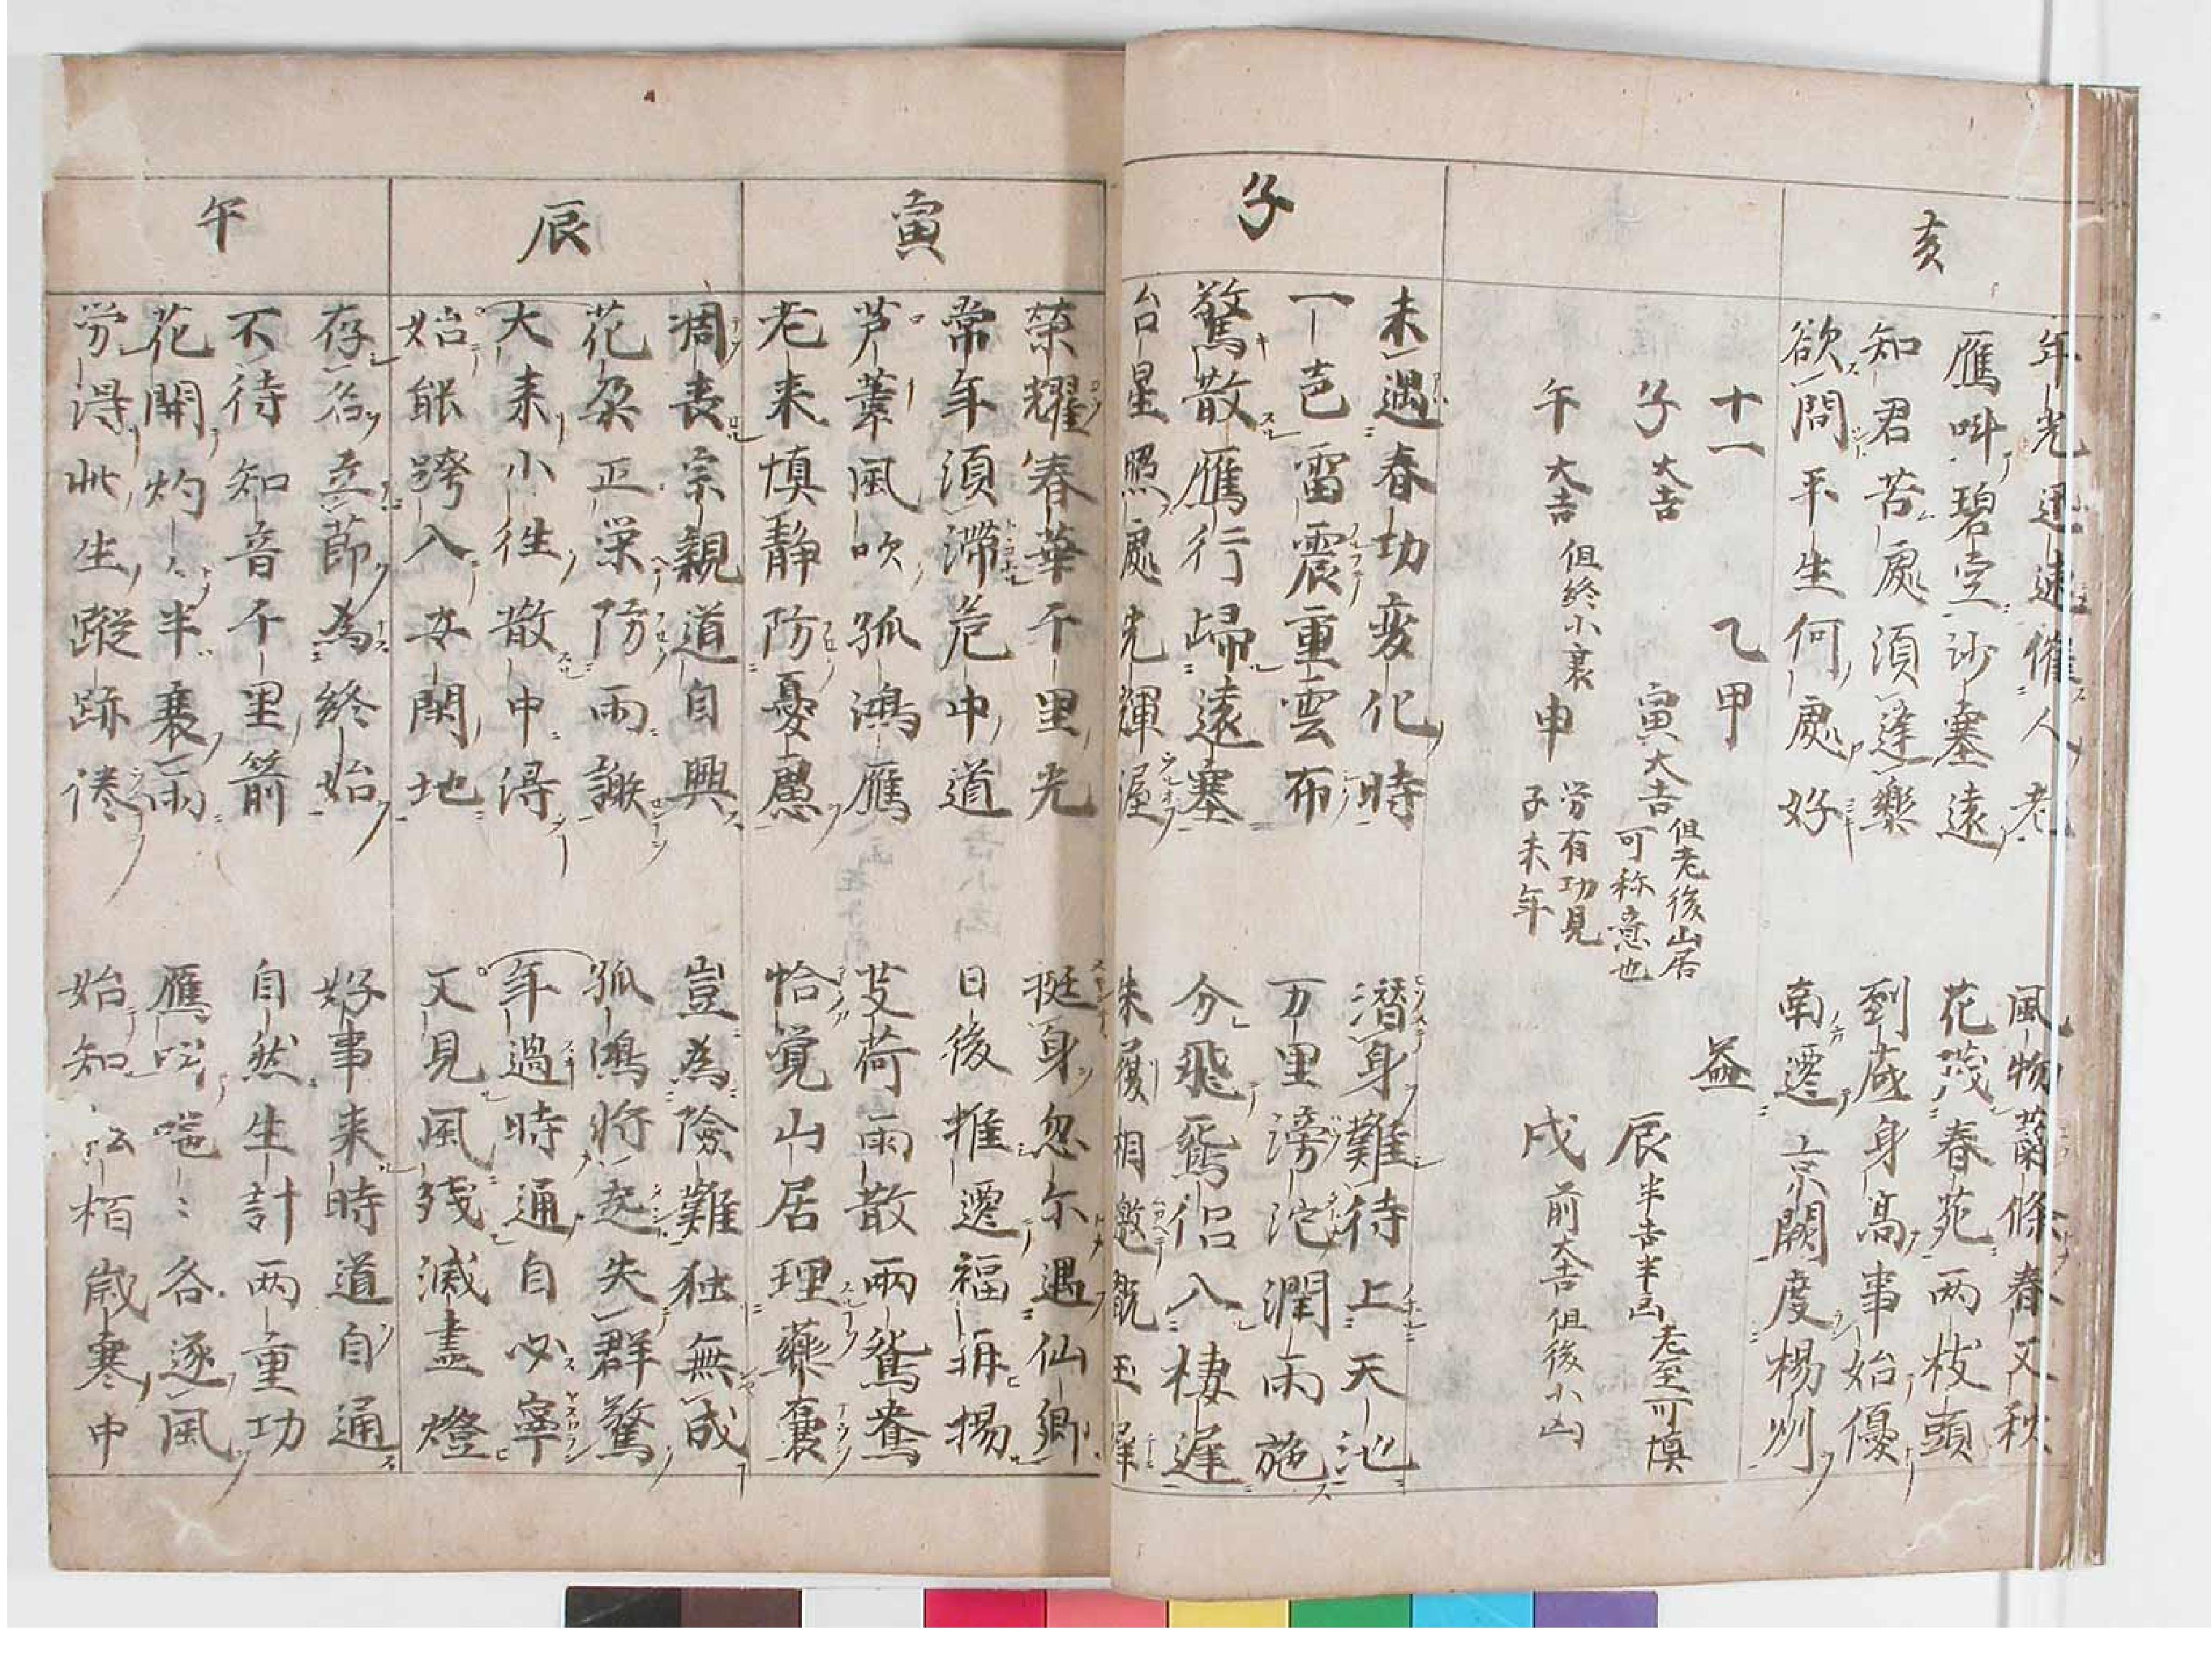 亥
年光迅速催人老　風物蕭條春又秋
雁叫碧空沙塞遠　花茂春苑両枝頭
知君苦處須逢樂　到歳身高事始優
欲問平生何處好　南遷京闕度楊州
十一　乙甲　益
子大吉　寅大吉　但老後山居可称意也　辰半吉半凶　老至可慎
午大吉　但終小衰　申　労有功見子未年　戌　前大吉但後小凶
子
未遇春功変化時　潜身難待上天池
一芭雷震重雲布　万里滂沱潤雨施
驚散雁行歸遠塞　分飛鴛侶入棲遅
台星照處光輝渥　朱履相邀玉墀
寅
榮耀春華千里光　挺身忽尓遇仙郷
常年須滞危中道　日後推遷福再揚
芦葦風吹孤鴻雁　芰荷雨散兩鴛鴦
老来慎静防憂慮　恰覚山居理藥嚢
辰
凋喪宗親道自興　豈為險難独無成
花栄防雨謝　孤鴻将起失群驚
大来小往散中得　年過時通自必寧
始能跨入安閑地　又見風残滅盡燈
午
存名立節為終始　好事来時道自通
不待知音千里箭　自然生計両重功
花開灼〻半衰雨　雁嗈〻各逐風
労得此生蹤跡倦　始知松栢歳寒中